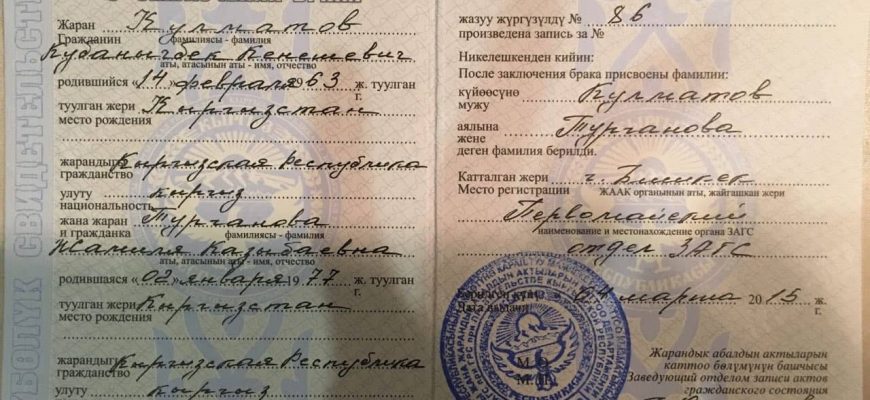 Жаран Кулматов
Гражданин фамилиясы - фамилия
Кубанычбек Кенешевич
аты, атасынын аты - имя, отчество
родившийся «14» февраля 1963 ж. туулган
г.
туулган жери Кыргызстан
место рождения
жарандыгы Кыргызская Республика
гражданство
улуту кыргыз
национальность
жана жаран Турганова
и гражданка фамилиясы - фамилия
Жамиля Казыбаевна
аты, атасынын аты - имя, отчество
родившаяся «02» января 1977 ж. туулган
г.
туулган жери Кыргызстан
место рождения
жарандыгы Кыргызская Республика
гражданство
улуту кыргыз
жазуу жүргүзүлдү № 86
произведена запись за №
Никелешкенден кийин:
После заключения брака присвоены фамилии:
күйөөсүнө Кулматов
мужу
аялына Турганова
жене
деген фамилия берилди.
Катталган жери г. Бишкек
Место регистрации ЖААК органынын аты, жайгашкан жери
Первомайский
наименование и местонахождение органа ЗАГС
отдел ЗАГС
марта 2015 ж.
Дата выдачи г.
М.О.
М.П.
Жарандык абалдын актыларын
каттоо бөлүмүнүн башчысы
Заведующий отделом записи актов
гражданского состояния
СВИДЕТЕЛЬСТВО